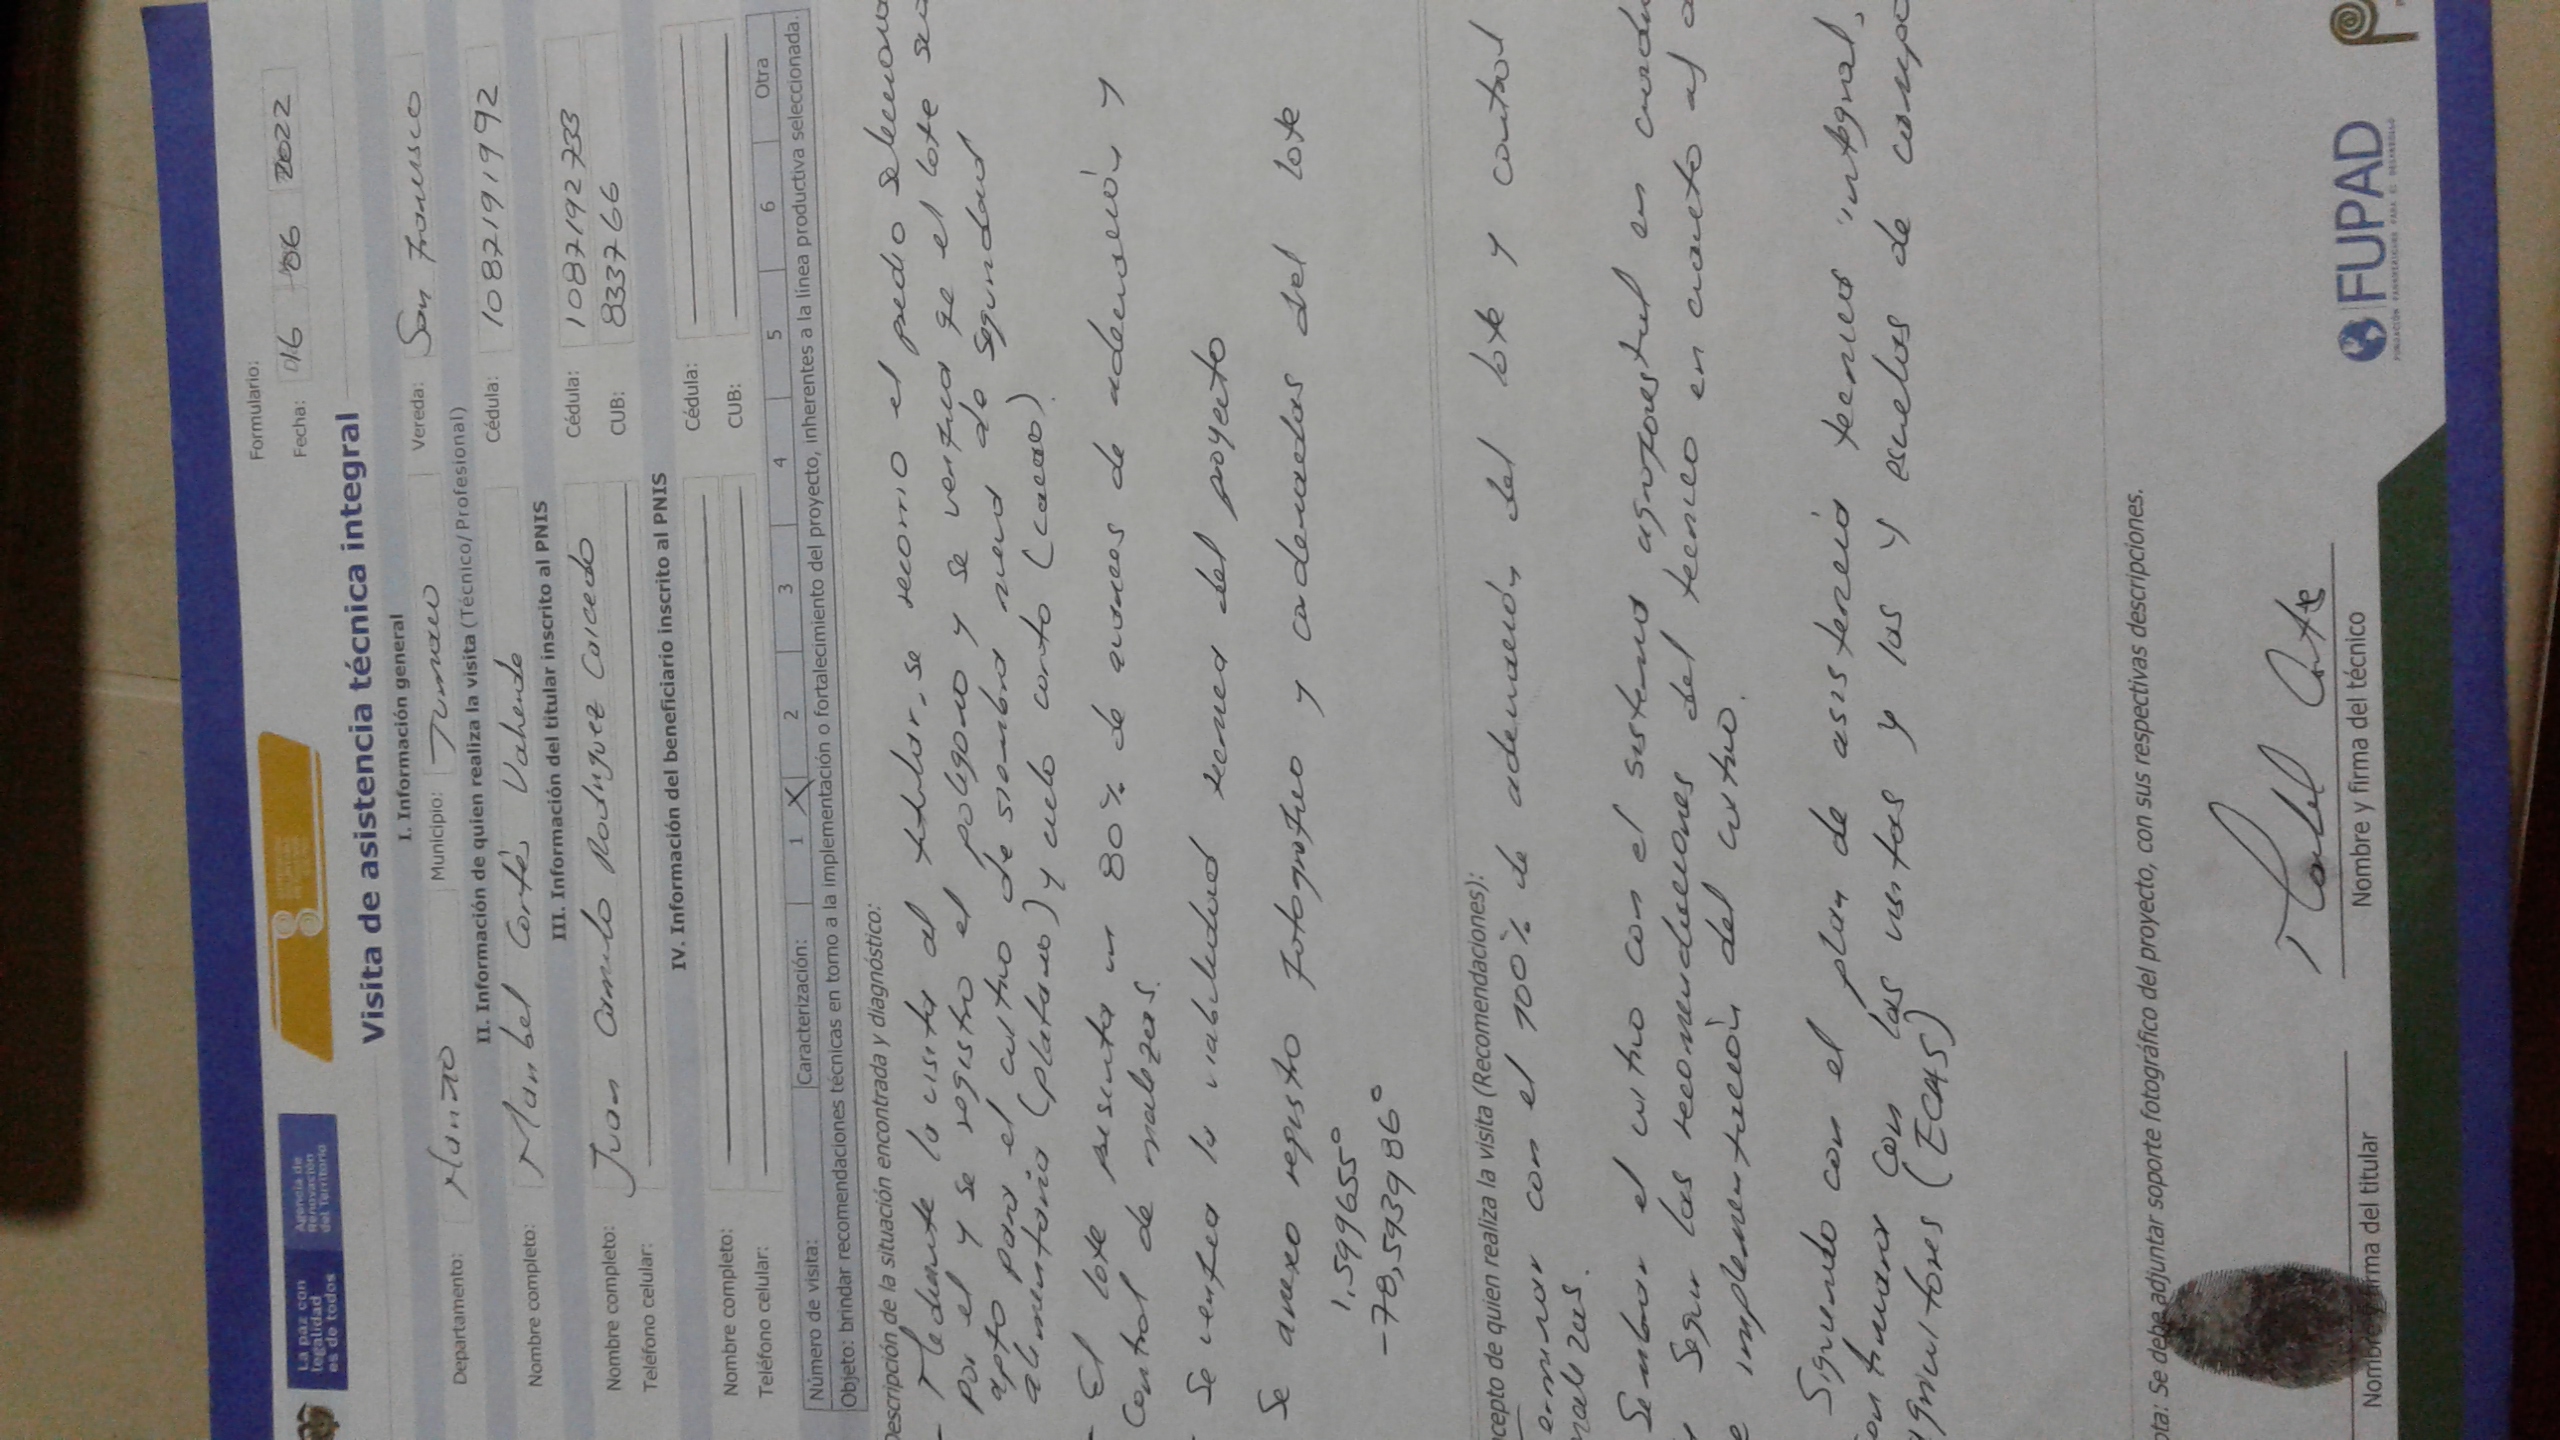 La paz con legalidad es de todos
Agencia de Renovación del Territorio
Formulario:
Fecha: 016 06 2022
Visita de asistencia técnica integral
I. Información general
Departamento: Nariño Municipio: Tumaco Vereda: San Francisco
II. Información de quien realiza la visita (Técnico/Profesional)
Nombre completo: Maribel Cortés Valiente Cédula: 1087191992
III. Información del titular inscrito al PNIS
Nombre completo: Juan Camilo Rodriguez Caicedo Cédula: 1087192733
Teléfono celular: CUB: 833766
IV. Información del beneficiario inscrito al PNIS
Nombre completo: Cédula:
Teléfono celular: CUB:
Número de visita: Caracterización: 1 X 2 3 4 5 6 Otra
Objeto: brindar recomendaciones técnicas en torno a la implementación o fortalecimiento del proyecto, inherentes a la línea productiva seleccionada.
Descripción de la situación encontrada y diagnóstico:
- Mediante la visita al titular, se recorrio el predio
por el y se registro el poligono y se verifica qe el lote
apto para el cultivo de siembra nueva de seguridad
alimentaria (platano) y ciclo corto (cacao).
- El lote presenta un 80% de avances de adecuación y
control de malezas.
- Se verifica la viabilidad tecnica del proyecto
Se anexo registro fotografico y cordenadas del lote
1,599655°
-78,5939986°
ncepto de quien realiza la visita (Recomendaciones):
con el 100% de adecuación del lote y control
malezas.
Sembrar el cultivo con el sistema agroforestal en
segun las recomendaciones del tecnico en cuanto al
e implementación del cultivo.
Siguiendo con el plan de asistencia tecnica integral,
con las visitas y las y escuelas de
agricultores (ECAS)
ota: Se debe adjuntar soporte fotográfico del proyecto, con sus respectivas descripciones.
Maribel Corte
Nombre y firma del titular Nombre y firma del técnico
FUPAD
FUNDACIÓN PANAMERICANA PARA EL DESARROLLO